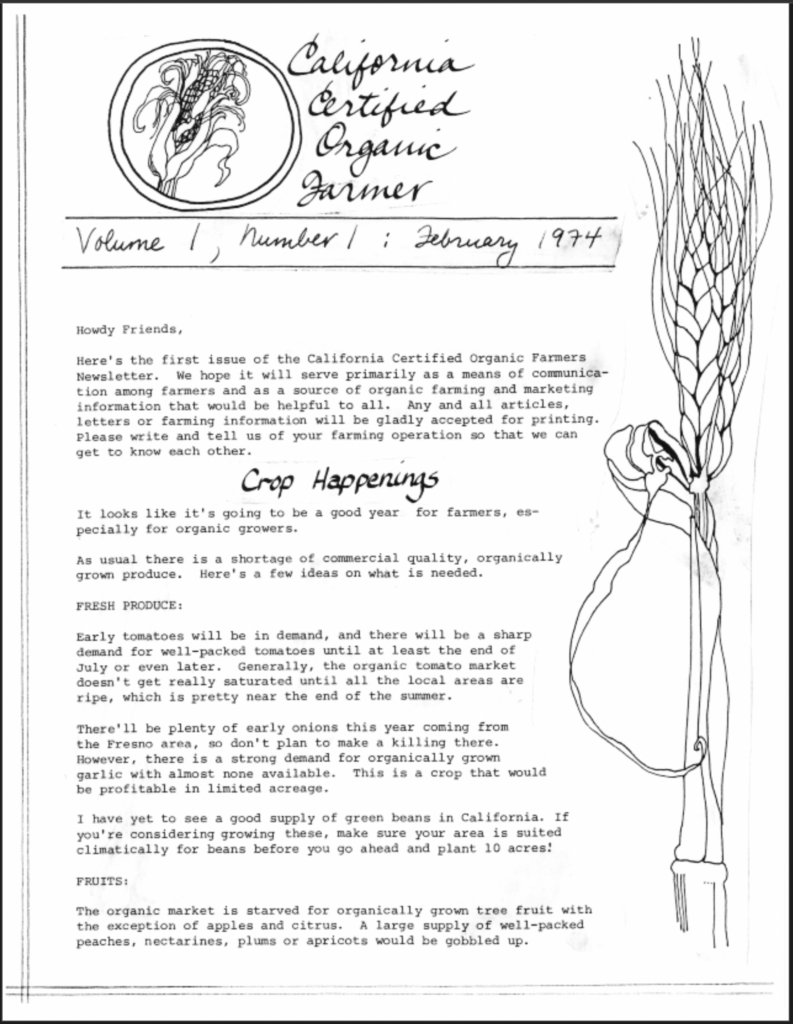 California
Certified
Organic
Farmer
Volume 1, Number 1 : February 1974
Howdy Friends,
Here's the first issue of the California Certified Organic Farmers
Newsletter. We hope it will serve primarily as a means of communica-
tion among farmers and as a source of organic farming and marketing
information that would be helpful to all. Any and all articles,
letters or farming information will be gladly accepted for printing.
Please write and tell us of your farming operation so that we can
get to know each other.
Crop Happenings
It looks like it's going to be a good year for farmers, es-
pecially for organic growers.
As usual there is a shortage of commercial quality, organically
grown produce. Here's a few ideas on what is needed.
FRESH PRODUCE:
Early tomatoes will be in demand, and there will be a sharp
demand for well-packed tomatoes until at least the end of
July or even later. Generally, the organic tomato market
doesn't get really saturated until all the local areas are
ripe, which is pretty near the end of the summer.
There'll be plenty of early onions this year coming from
the Fresno area, so don't plan to make a killing there.
However, there is a strong demand for organically grown
garlic with almost none available. This is a crop that would
be profitable in limited acreage.
I have yet to see a good supply of green beans in California. If
you're considering growing these, make sure your area is suited
climatically for beans before you go ahead and plant 10 acres!
FRUITS:
The organic market is starved for organically grown tree fruit with
the exception of apples and citrus. A large supply of well-packed
peaches, nectarines, plums or apricots would be gobbled up.